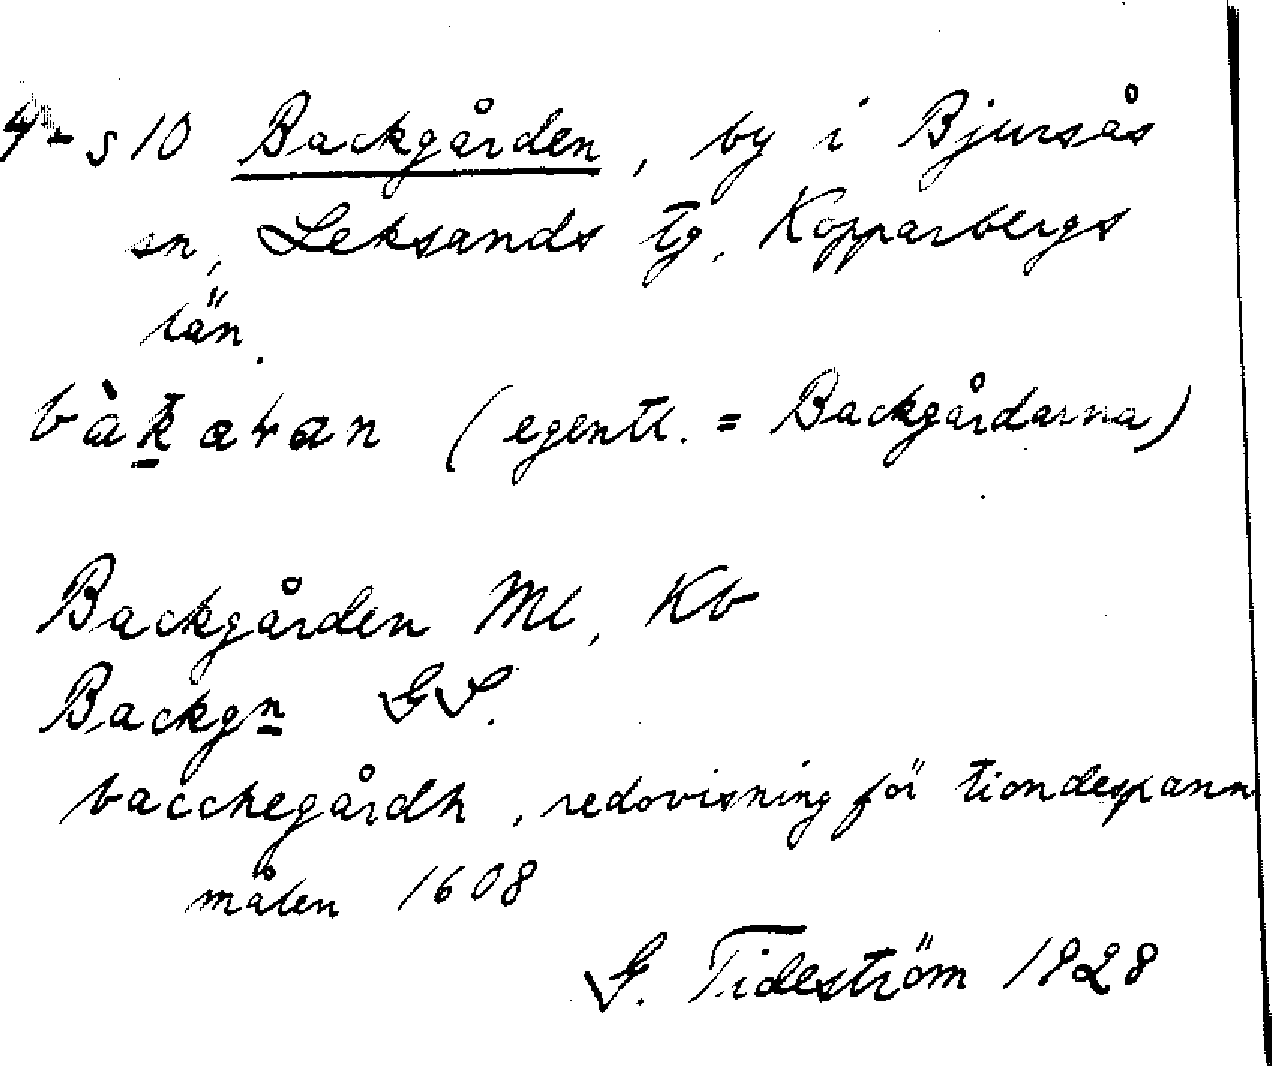 4-s10 Backgården, by i Bjursås
sn, Leksands tg, Kopparbergs
län.
bàkaran (egentl. = Backgårdarna)
Backgården Ml, Kb
Backgn GS.
bacchegårdh, redovisning för tiondespann
målen 1608
G. Tideström 1928